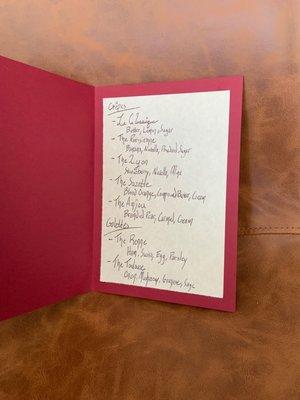 Crêpes
- Le Classique
Butter, Lemon, Sugar
- The Parisienne
Banana, Nutella, Powdered Sugar
- The Lyon
Strawberry, Nutella,
- The Suzette
Blood Orange, Compound Butter, Cream
- The Anjou
Brandied Pear, Caramel, Cream
Galettes
- The
Ham, Swiss, Egg, Parsley
- The
Onion, Mushroom, Gruyere, Sage